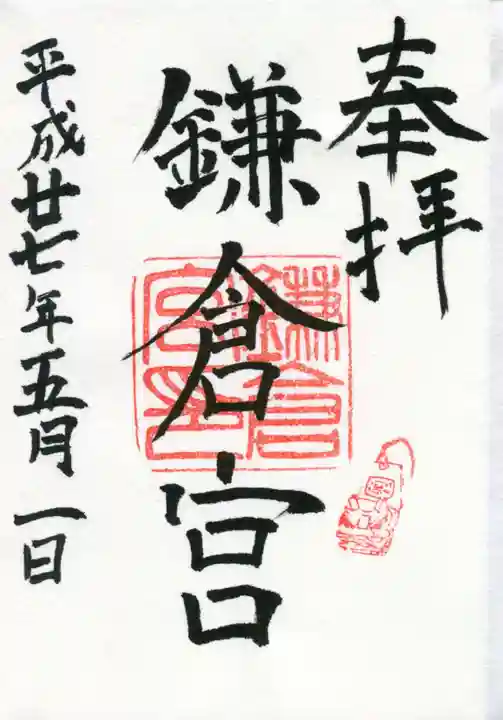 奉拝
鎌倉宮
鎌倉宮印
平成廿七年五月一日